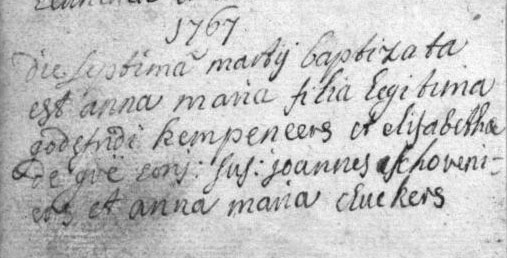 1767
die septima martij baptizata
est anna maria filia legitima
godefridi kempeneers et elisabethæ
de gré conj: sus: joannes schoveni-
ers et anna maria cluckers